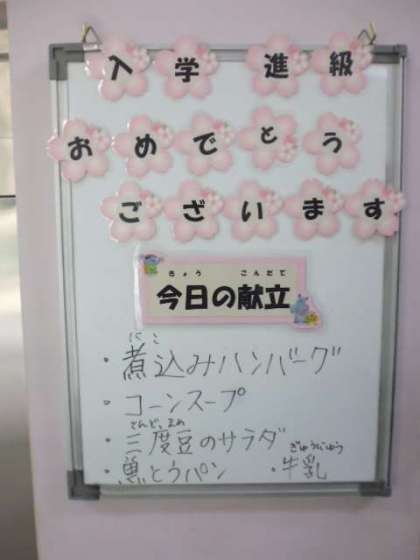 入学進級
おめでとう
ございます
きょう こんだて
今日の献立
にこ
・煮込みハンバーグ
・コーンスープ
さんどまめ
・三度豆のサラダ
ぎゅうにゅう
・黒とうパン ・牛乳